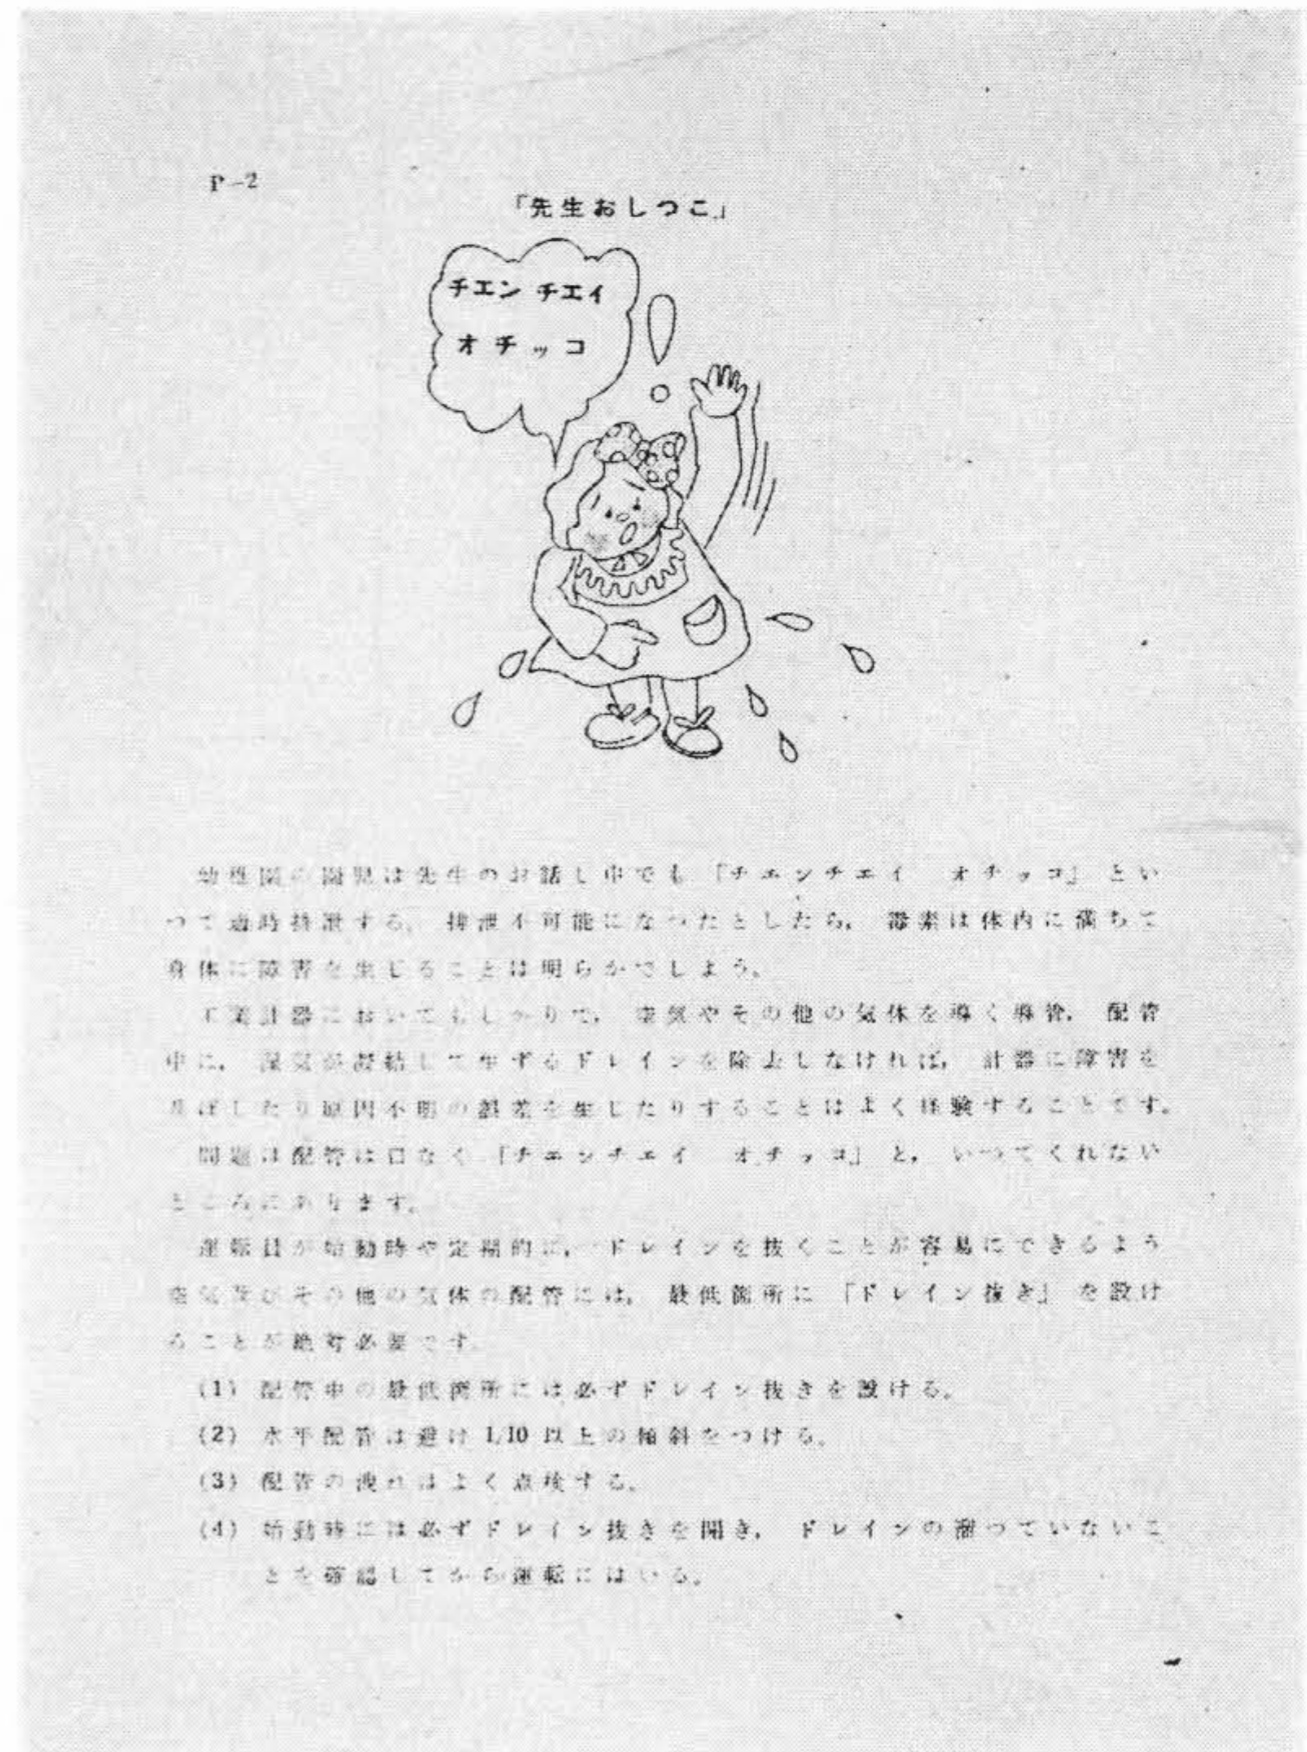 P-2
「先生おしつこ」
チエン チエイ
オチッコ
幼稚園の園児は先生のお話し中でも「チエンチエイ オチッコ」とい
つて適時排泄する。排泄不可能になつたとしたら、毒素は体内に満ちて
身体に障害を生じることは明らかでしよう。
工業計器においてもしかりで、空気やその他の気体を導く導管、配管
中に、湿気が凝結して生ずるドレインを除去しなければ、計器に障害を
及ぼしたり原因不明の誤差を生じたりすることはよく経験することです。
問題は配管は口なく「チエンチエイ オチッコ」と、いつてくれない
ところにあります。
運転員が始動時や定期的に、ドレインを抜くことが容易にできるよう
空気及びその他の気体の配管には、最低箇所に「ドレイン抜き」を設け
ることが絶対必要です。
(1) 配管中の最低箇所には必ずドレイン抜きを設ける。
(2) 水平配管は避け 1/10 以上の傾斜をつける。
(3) 配管の洩れはよく点検する。
(4) 始動時には必ずドレイン抜きを開き、ドレインの溜つていないこ
とを確認してから運転にはいる。